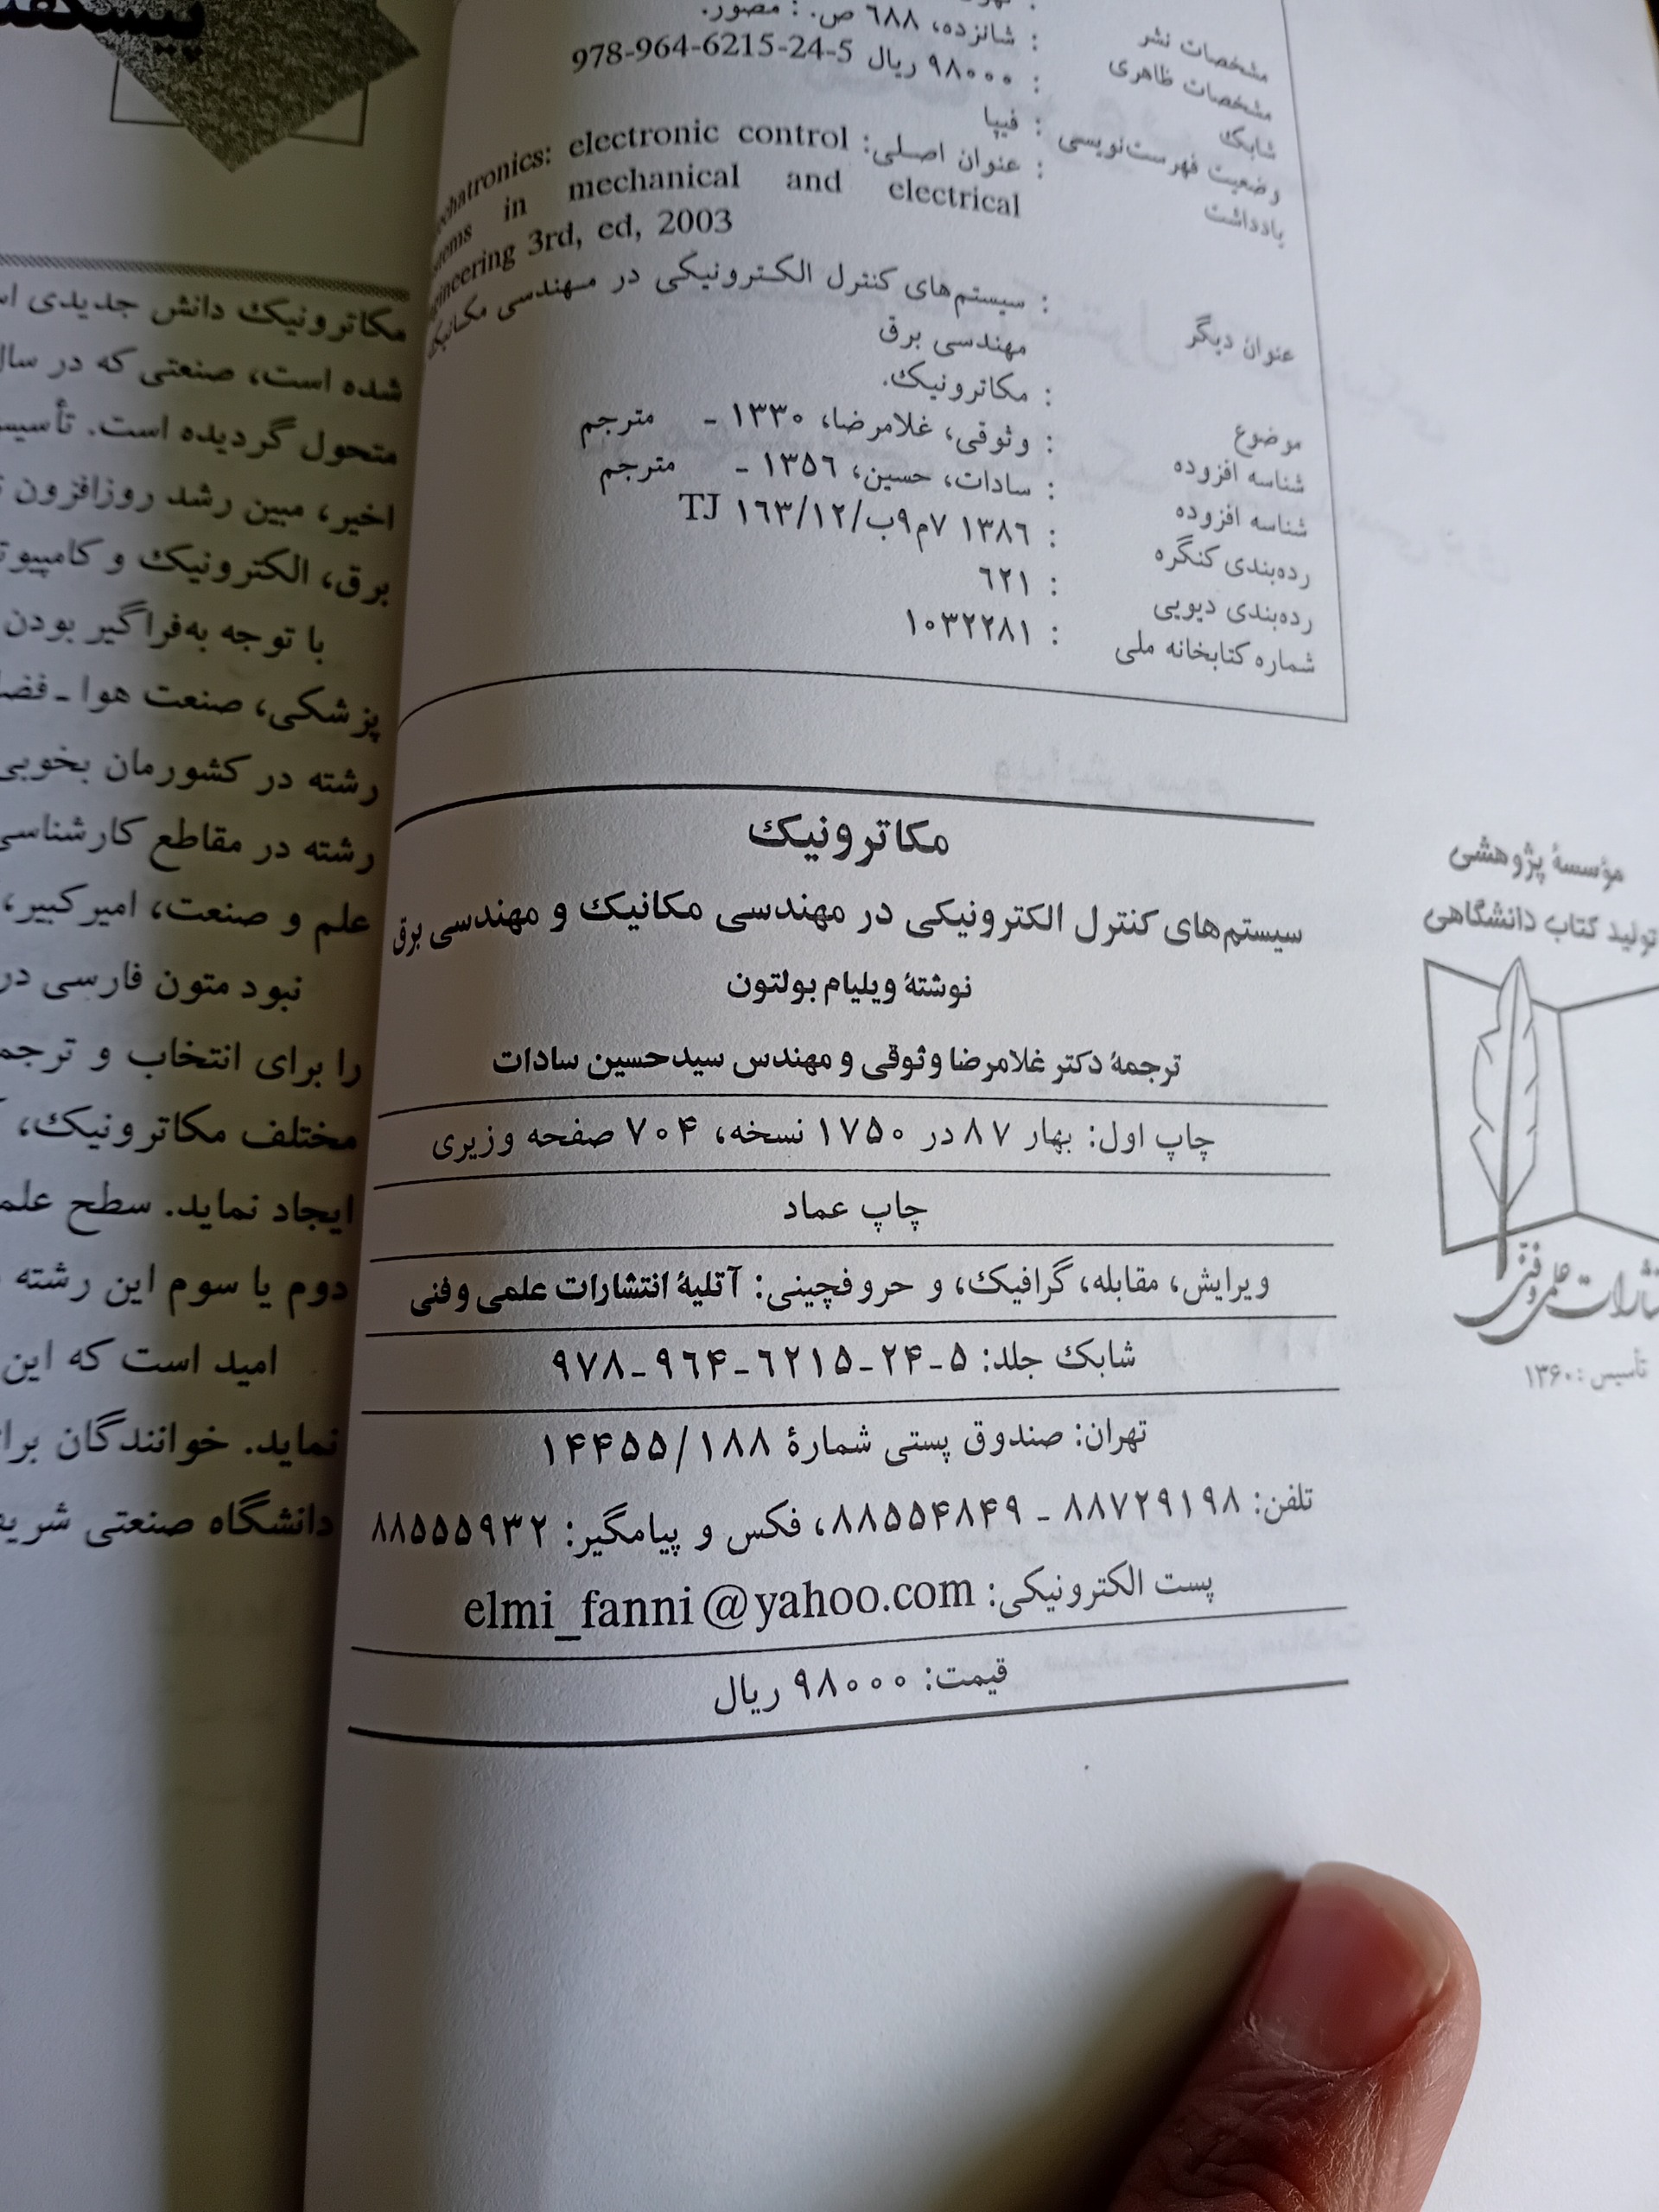 مشخصات نشر :
مشخصات ظاهری : شانزده، ۶۸۸ ص. : مصور.
شابک : ۹۸۰۰۰ ریال 978-964-6215-24-5
وضعیت فهرست‌نویسی : فیپا
یادداشت : عنوان اصلی: electronic control
in mechanical and electrical
3rd, ed, 2003
عنوان دیگر : سیستم‌های کنترل الکترونیکی در مهندسی مکانیک
مهندسی برق
موضوع : مکاترونیک.
شناسه افزوده : وثوقی، غلامرضا، ۱۳۳۰ ـ مترجم
شناسه افزوده : سادات، حسین، ۱۳۵۶ ـ مترجم
رده‌بندی کنگره : ۱۳۸۶ ۷م۹ب/۱۶۳/۱۲ TJ
رده‌بندی دیویی : ۶۲۱
شماره کتابخانه ملی : ۱۰۳۲۲۸۱
مکاترونیک
سیستم‌های کنترل الکترونیکی در مهندسی مکانیک و مهندسی برق
نوشتهٔ ویلیام بولتون
ترجمهٔ دکتر غلامرضا وثوقی و مهندس سیدحسین سادات
چاپ اول: بهار ۸۷ در ۱۷۵۰ نسخه، ۷۰۴ صفحه وزیری
چاپ عماد
ویرایش، مقابله، گرافیک، و حروفچینی: آتلیهٔ انتشارات علمی و فنی
شابک جلد: ۵-۲۴-۶۲۱۵-۹۶۴-۹۷۸
تهران: صندوق پستی شمارهٔ ۱۴۴۵۵/۱۸۸
تلفن: ۸۸۷۲۹۱۹۸ ـ ۸۸۵۵۴۸۴۹، فکس و پیامگیر: ۸۸۵۵۵۹۳۲
پست الکترونیکی: elmi_fanni@yahoo.com
قیمت: ۹۸۰۰۰ ریال
مؤسسهٔ پژوهشی
تولید کتاب دانشگاهی
علمی و فنی
تأسیس: ۱۳۶۰
مکاترونیک دانش جدیدی
شده است، صنعتی که در
متحول گردیده است.
اخیر، مبین رشد روزافزون
برق، الکترونیک و
با توجه به‌فراگیر بودن
پزشکی، صنعت هوا ـ
رشته در کشورمان
رشته در مقاطع
علم و صنعت، امیرکبیر،
نبود متون فارسی
را برای انتخاب و
مختلف مکاترونیک،
ایجاد نماید. سطح
دوم یا سوم این رشته
امید است که این
نماید. خوانندگان
دانشگاه صنعتی